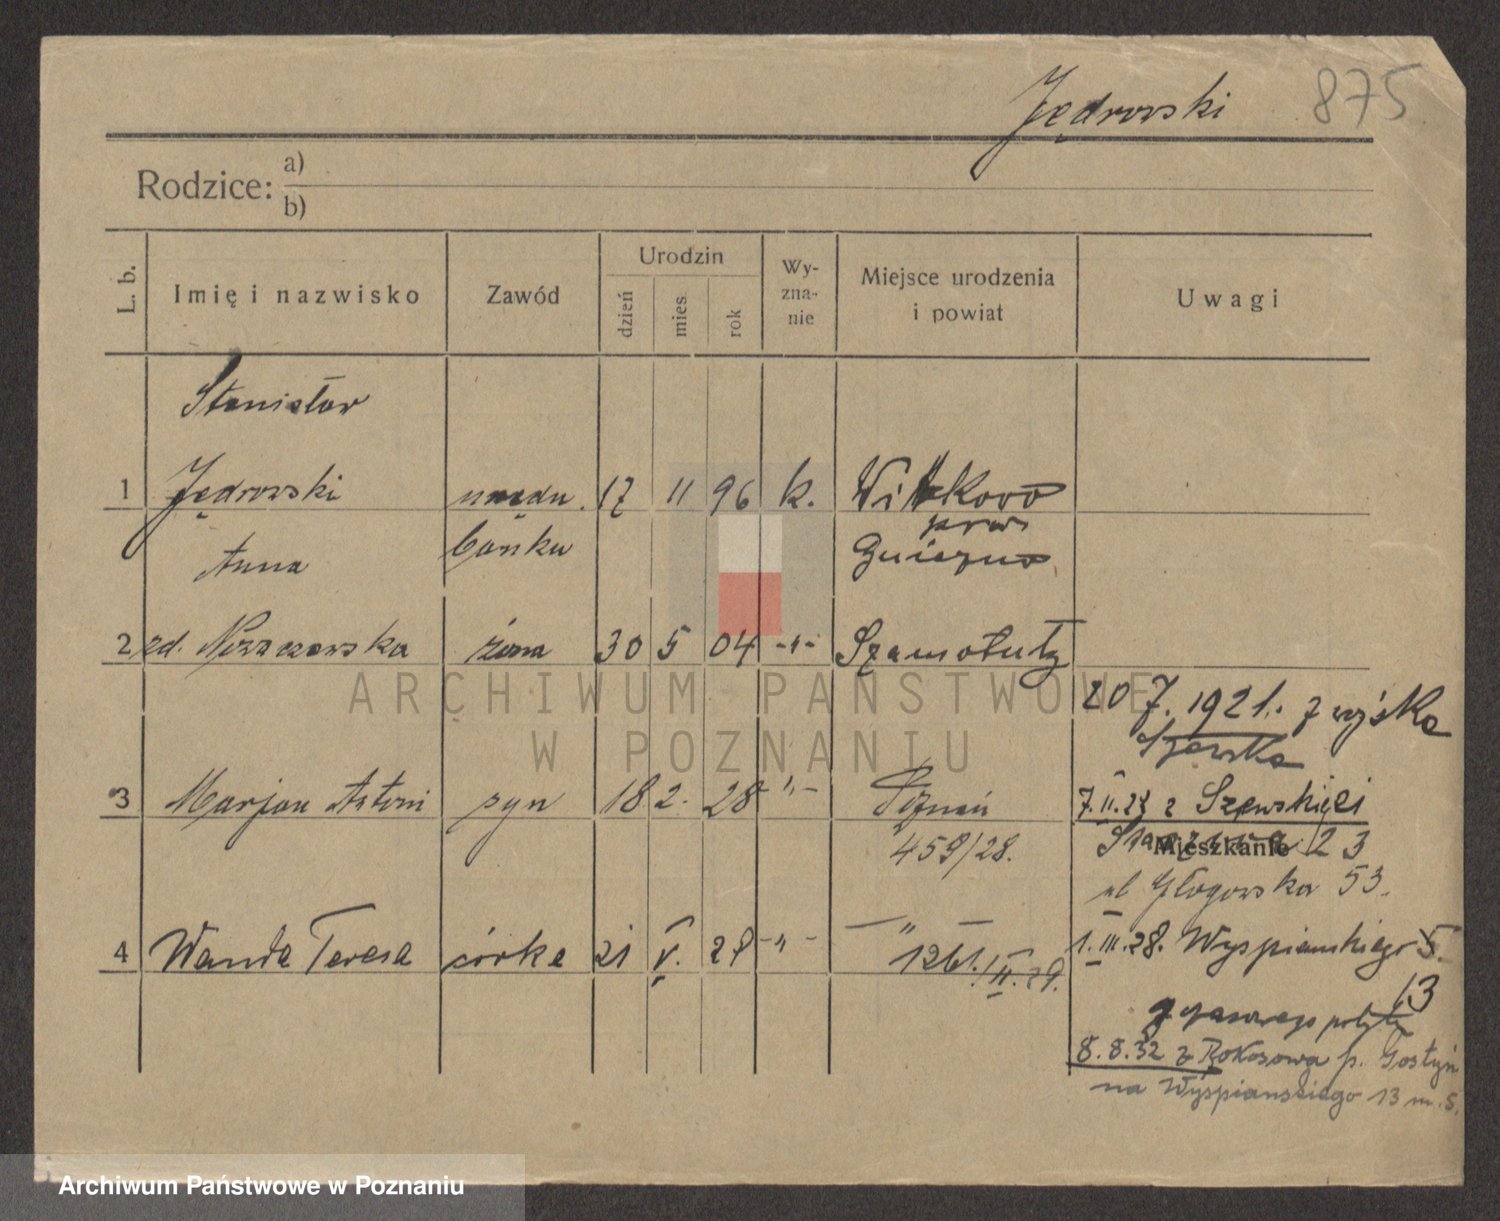 Jędrowski 875
Rodzice: a)
b)
L. b. Imię i nazwisko Zawód Urodzin dzień mies. rok Wy-zna-nie Miejsce urodzenia i powiat Uwagi
Stanisław
1 Jędrowski urzędn. 17 11 96 k. Witkowo
banku pow.
Anna Gniezno
2 zd. żona 30 5 04 -"- Szamotuły
ARCHIWUM PAŃSTWOWE
W POZNANIU
20 7. 1921. z wojska
Szewska
3 Marjan Antoni syn 18 2. 28 -"- Poznań 7.II.23 z Szewskiej
459/28. Mieszkanie 23
ul Głogowska 53.
1.III.28. Wyspiańskiego 5.
4 Wanda Teresa córka 21 V. 29 -"- -"-
1261./II.29.
13
8.8.32 z Rokosowa p. Gostyń
na Wyspianskiego 13 m. 5.
Archiwum Państwowe w Poznaniu